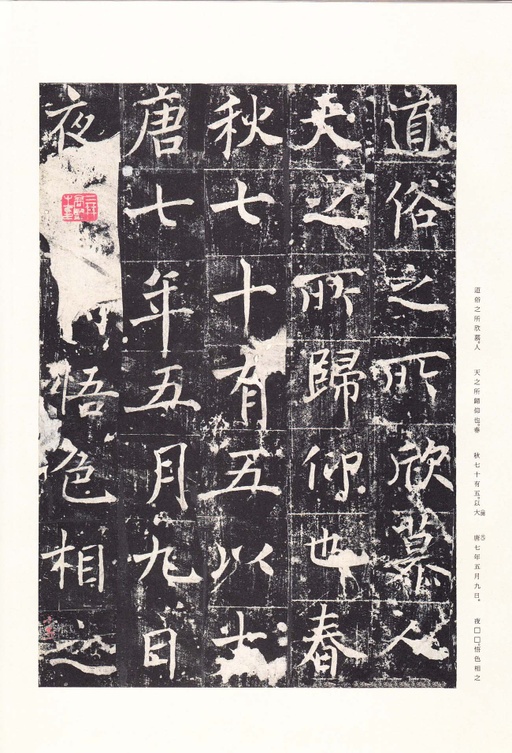 道俗之所欣慕人
天之所歸仰也春
秋七十有五以大
唐七年五月九日
夜□□悟色相之
道俗之所欣慕。人 天之所歸仰也。春 秋七十有五。以大 唐七年五月九日。 夜□□悟色相之